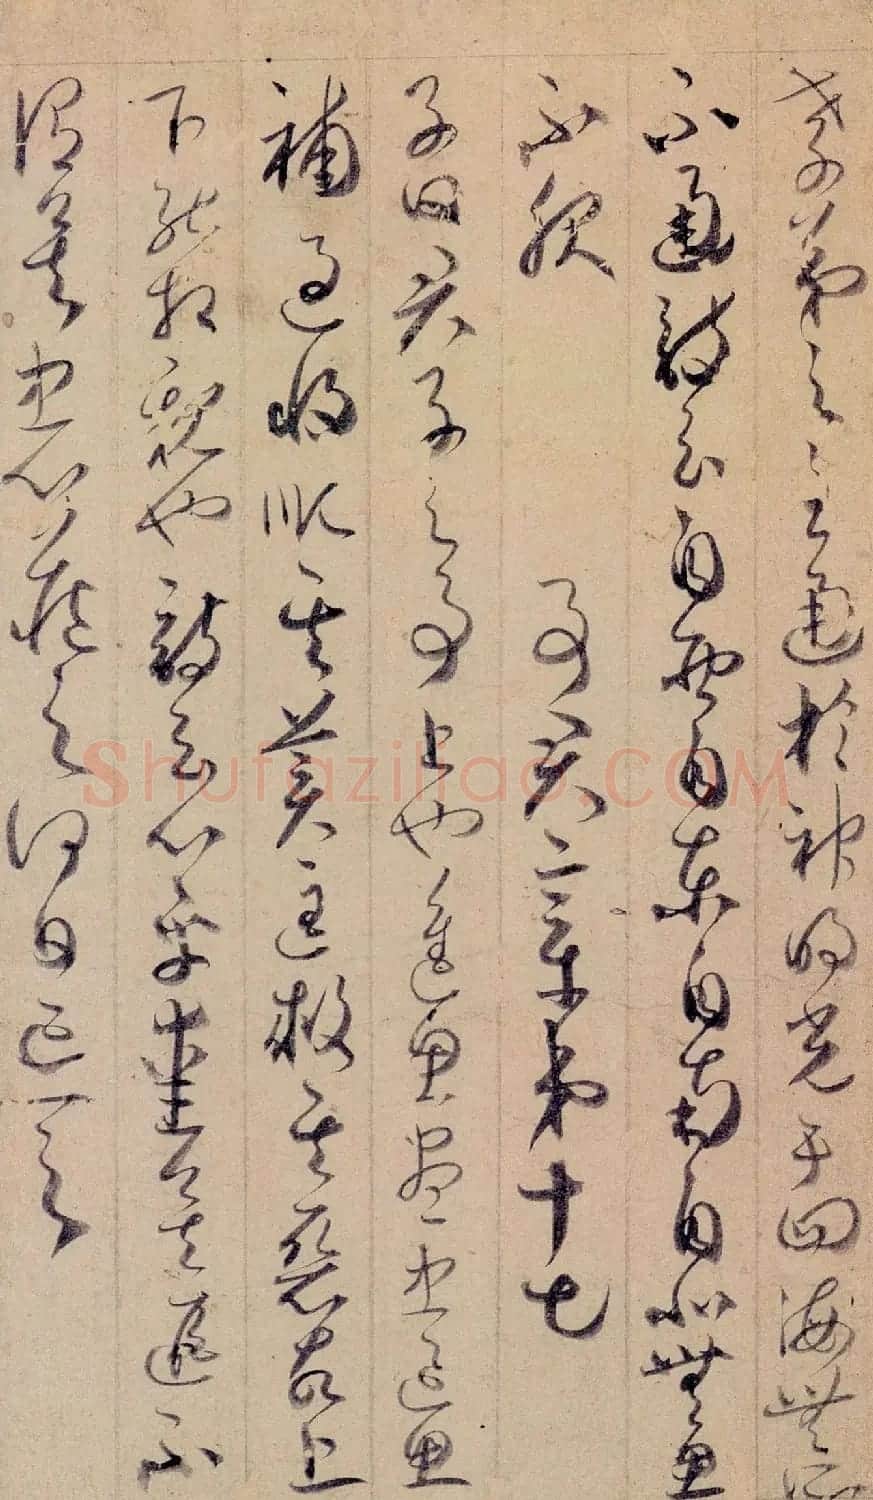 孝弟之至通於神明光于四海無所
不通詩云自西自東自南自北無思
不服
事君章第十七
子曰君子之事上也進思盡忠退思
補過將順其美匡救其惡故上
下能相親也詩云心乎愛矣遐不
謂矣忠心藏之何日忘之
Shufaziliao.COM